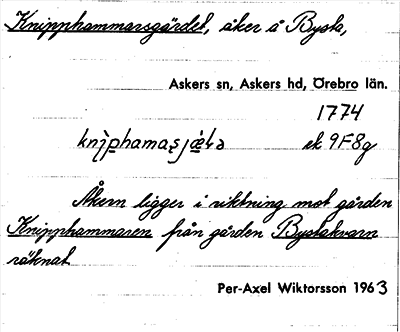 Knipphammarsgärdet, åker å Bysta,
Askers sn, Askers hd, Örebro län.
1774
ek 9F8g
Åkern ligger i riktning mot gården
Knipphammaren från gården Bystakvarn
räknat
Per-Axel Wiktorsson 1963